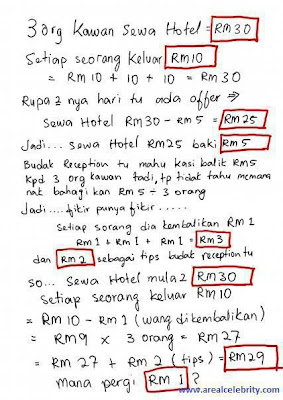 3 org Kawan Sewa Hotel = RM30
Setiap seorang Keluar RM10
= RM 10 + 10 + 10 = RM 30
Rupa2 nya hari tu ada offer ⇒
Sewa Hotel RM30 - RM 5 = RM25
Jadi... sewa Hotel RM25 baki RM 5
Budak Reception tu mahu kasi balik RM5
Kpd 3 org kawan tadi, tp tidak tahu memana
nak bahagikan RM5 ÷ 3 orang
Jadi.... fikir punya fikir ......
setiap sorang dia kembalikan RM 1
RM 1 + RM 1 + RM 1 = RM 3
dan RM 2 sebagai tips budak reception tu
so... Sewa Hotel mula2 RM30
Setiap seorang keluar RM10
= RM 10 - RM 1 (wang dikembalikan)
= RM9 x 3 orang = RM 27
= RM 27 + RM 2 (tips) = RM29
mana pergi RM 1 ?
www.arealcelebrity.com